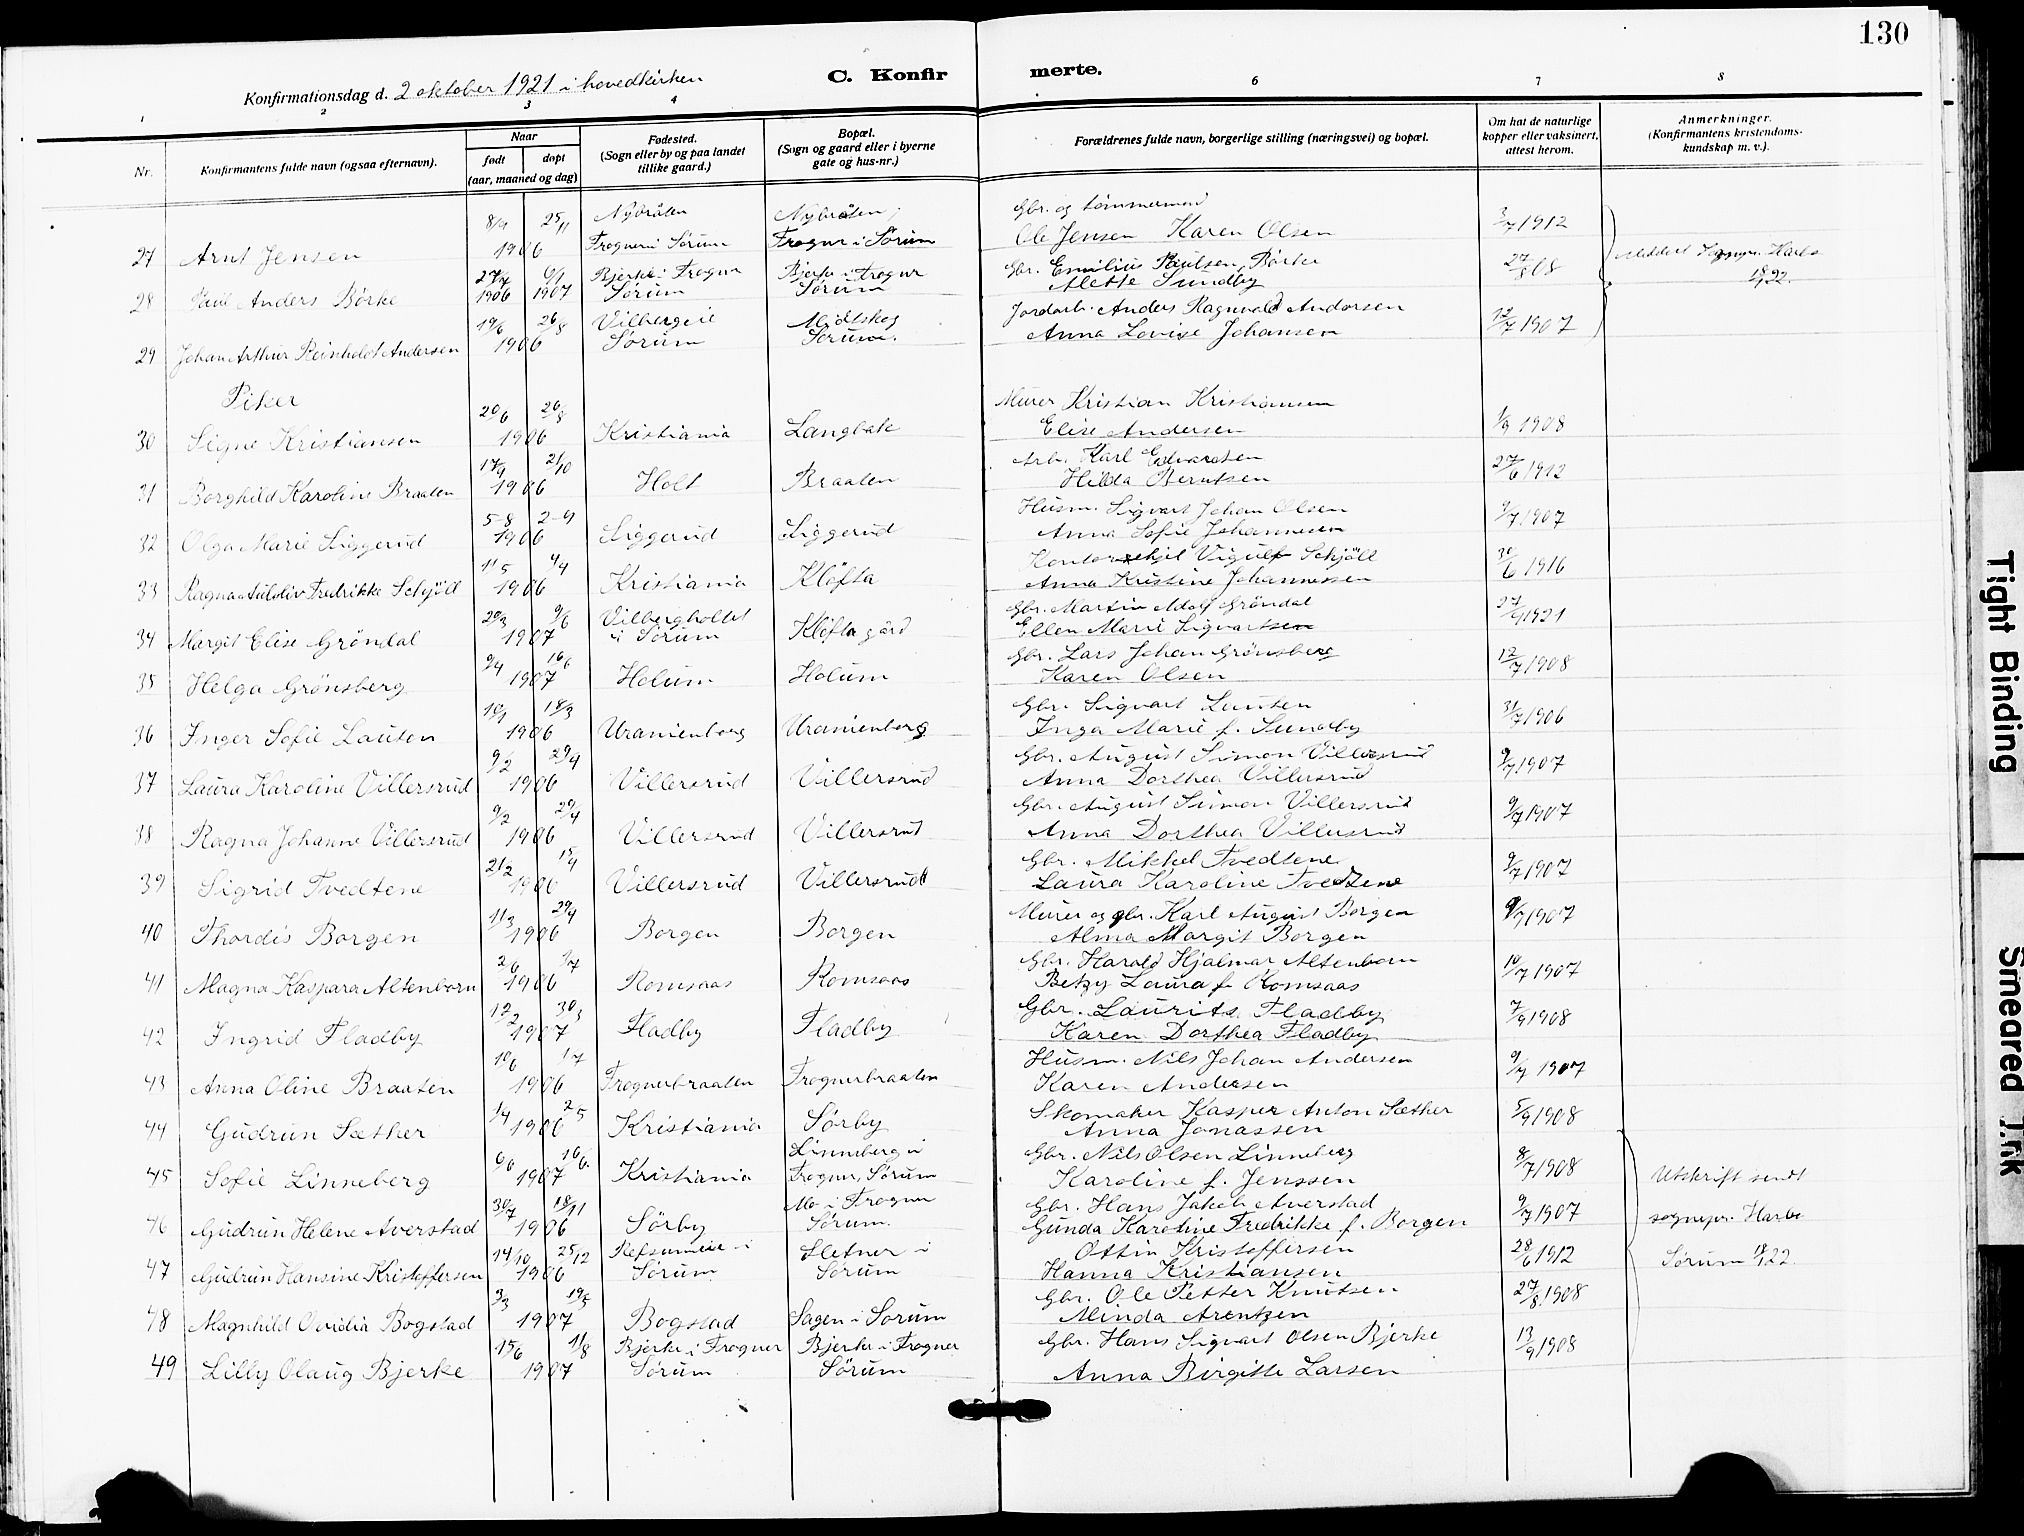 130
Konfirmationsdag d. 2 oktober 1921 i hovedkirken
C. Konfirmerte.
1 2 3 4 6 7 8
Nr.
Konfirmantens fulde navn (ogsaa efternavn).
Naar
født
døpt
(aar, maaned og dag)
Fødested.
(Sogn eller by og paa landet
tillike gaard.)
Bopæl.
(Sogn og gaard eller i byerne
gate og hus-nr.)
Forældrenes fulde navn, borgerlige stilling (næringsvei) og bopæl.
Om hat de naturlige
kopper eller vaksinert,
attest herom.
Anmerkninger.
(Konfirmantens kristendoms-
kundskap m. v.).
27 Arnt Jensen 8/9 25/11 1906 Nybråten Frogner i Sørum Nybråten, Frogner i Sörum Gbr. og tömmermand Ole Jensen Karen Olsen 3/7 1912
28 Paul Anders Börke 27/7 1906 6/1 1907 Bjerke i Frogner Sørum Bjerke i Frogner Sørum Gbr. Emilius Paulsen Börke Alette Sundby 27/8 08
29 Johan Arthur Reinholdt Andersen 19/6 26/8 1906 Vilbergeie Sørum Mjölskog Sørum. Jordarb. Anders Ragnvald Andersen Anna Lovise Johansen 12/7 1907
Piker
30 Signe Kristiansen 20/6 26/8 1906 Kristiania Langbak Murer Kristian Kristiansen Elise Andersen 1/9 1908
31 Borghild Karoline Braaten 17/9 21/10 1906 Holt Braaten Arb. Karl Edvardsen Hilda Berntsen 27/6 1912
32 Olga Marie Liggerud 5-8 2-9 1906 Liggerud Liggerud Husm. Sigvart Johan Olsen Anna Sofie Johannesen 9/7 1907
33 Ragna Fredrikke Schjöll 11/5 4/9 1906 Kristiania Klöfta Schjöll Anna Kristine Johannessen 30/6 1916
34 Margit Elise Gröndal 20/3 9/6 1907 Vilbergholtet i Sörum Klöfta gård Gbr. Martin Adolf Gröndal Ellen Marie Sigvartsen 27/9 1921
35 Helga Grönsberg 9/4 16/6 1907 Holum Holum Gbr. Lars Johan Grönsberg Karen Olsen 12/7 1908
36 Inger Sofie Lautsen 10/1 18/3 1906 Uranienborg Uranienborg Gbr. Sigvart Lautsen Inga Marie f. Sundby 31/7 1906
37 Laura Karoline Villersrud 9/2 29/4 1906 Villersrud Villersrud Gbr. August Simon Villersrud Anna Dorthea Villersrud 9/7 1907
38 Ragna Johanne Villersrud 9/2 29/4 1906 Villersrud Villersrud Gbr. August Simon Villersrud Anna Dorthea Villersrud 9/7 1907
39 Sigrid Tvedtene 21/2 15/4 1906 Villersrud Villersrud Gbr. Mikkel Tvedtene Laura Karoline Tvedtene 9/7 1907
40 Thordis Borgen 11/3 29/4 1906 Borgen Borgen Murer og gbr. Karl August Borgen Alma Margit Borgen 9/7 1907
41 Magna Kaspara Altenborn 2/6 1/7 1906 Romsaas Romsaas Gbr. Harald Hjalmar Altenborn Betzy Laura f. Romsaas 10/7 1907
42 Ingrid Fladby 12/2 30/3 1907 Fladby Fladby Gbr. Laurits Fladby Karen Dorthea Fladby 7/9 1908
43 Anna Oline Braaten 10/6 1/7 1906 Frognerbraaten Frognerbraaten Husm. Nils Johan Andersen Karen Andersen 9/7 1907
44 Gudrun Sæther 1/4 2/5 1906 Kristiania Sörby Skomaker Kasper Anton Sæther Anna Jonassen 5/9 1908
45 Sofie Linneberg 6/6 16/6. 1907 Kristiania Linneberg i Frogner, Sörum Gbr. Nils Olsen Linneberg Karoline f. Jenssen 8/7 1908
46 Gudrun Helene Averstad 30/7 18/11 1906 Sørby Mo i Frogner Sørum. Gbr. Hans Jakob Averstad Gunda Karoline Fredrikke f. Borgen 9/7 1907
47 Gudrun Hansine Kristoffersen 14/10 25/12 1906 Refsumeie i Sørum Sletner i Sørum Ottin Kristoffersen Hanna Kristiansen 28/6 1912
48 Magnhild Ovidia Bogstad 3/3 19/5 1907 Bogstad Sagen i Sorum Gbr. Ole Petter Knutsen Minda Arentzen 27/8 1908
49 Lilly Olaug Bjerke 15/6 11/8 1907 Bjerke i Frogner Sørum Bjerke i Frogner Sørum Gbr. Hans Sigvart Olsen Bjerke Anna Birgitte Larsen 13/9 1908
Utskrift sendt
sognepr. Harbo
Sørum 18/1 22.
Tight Binding
Smeared Ink